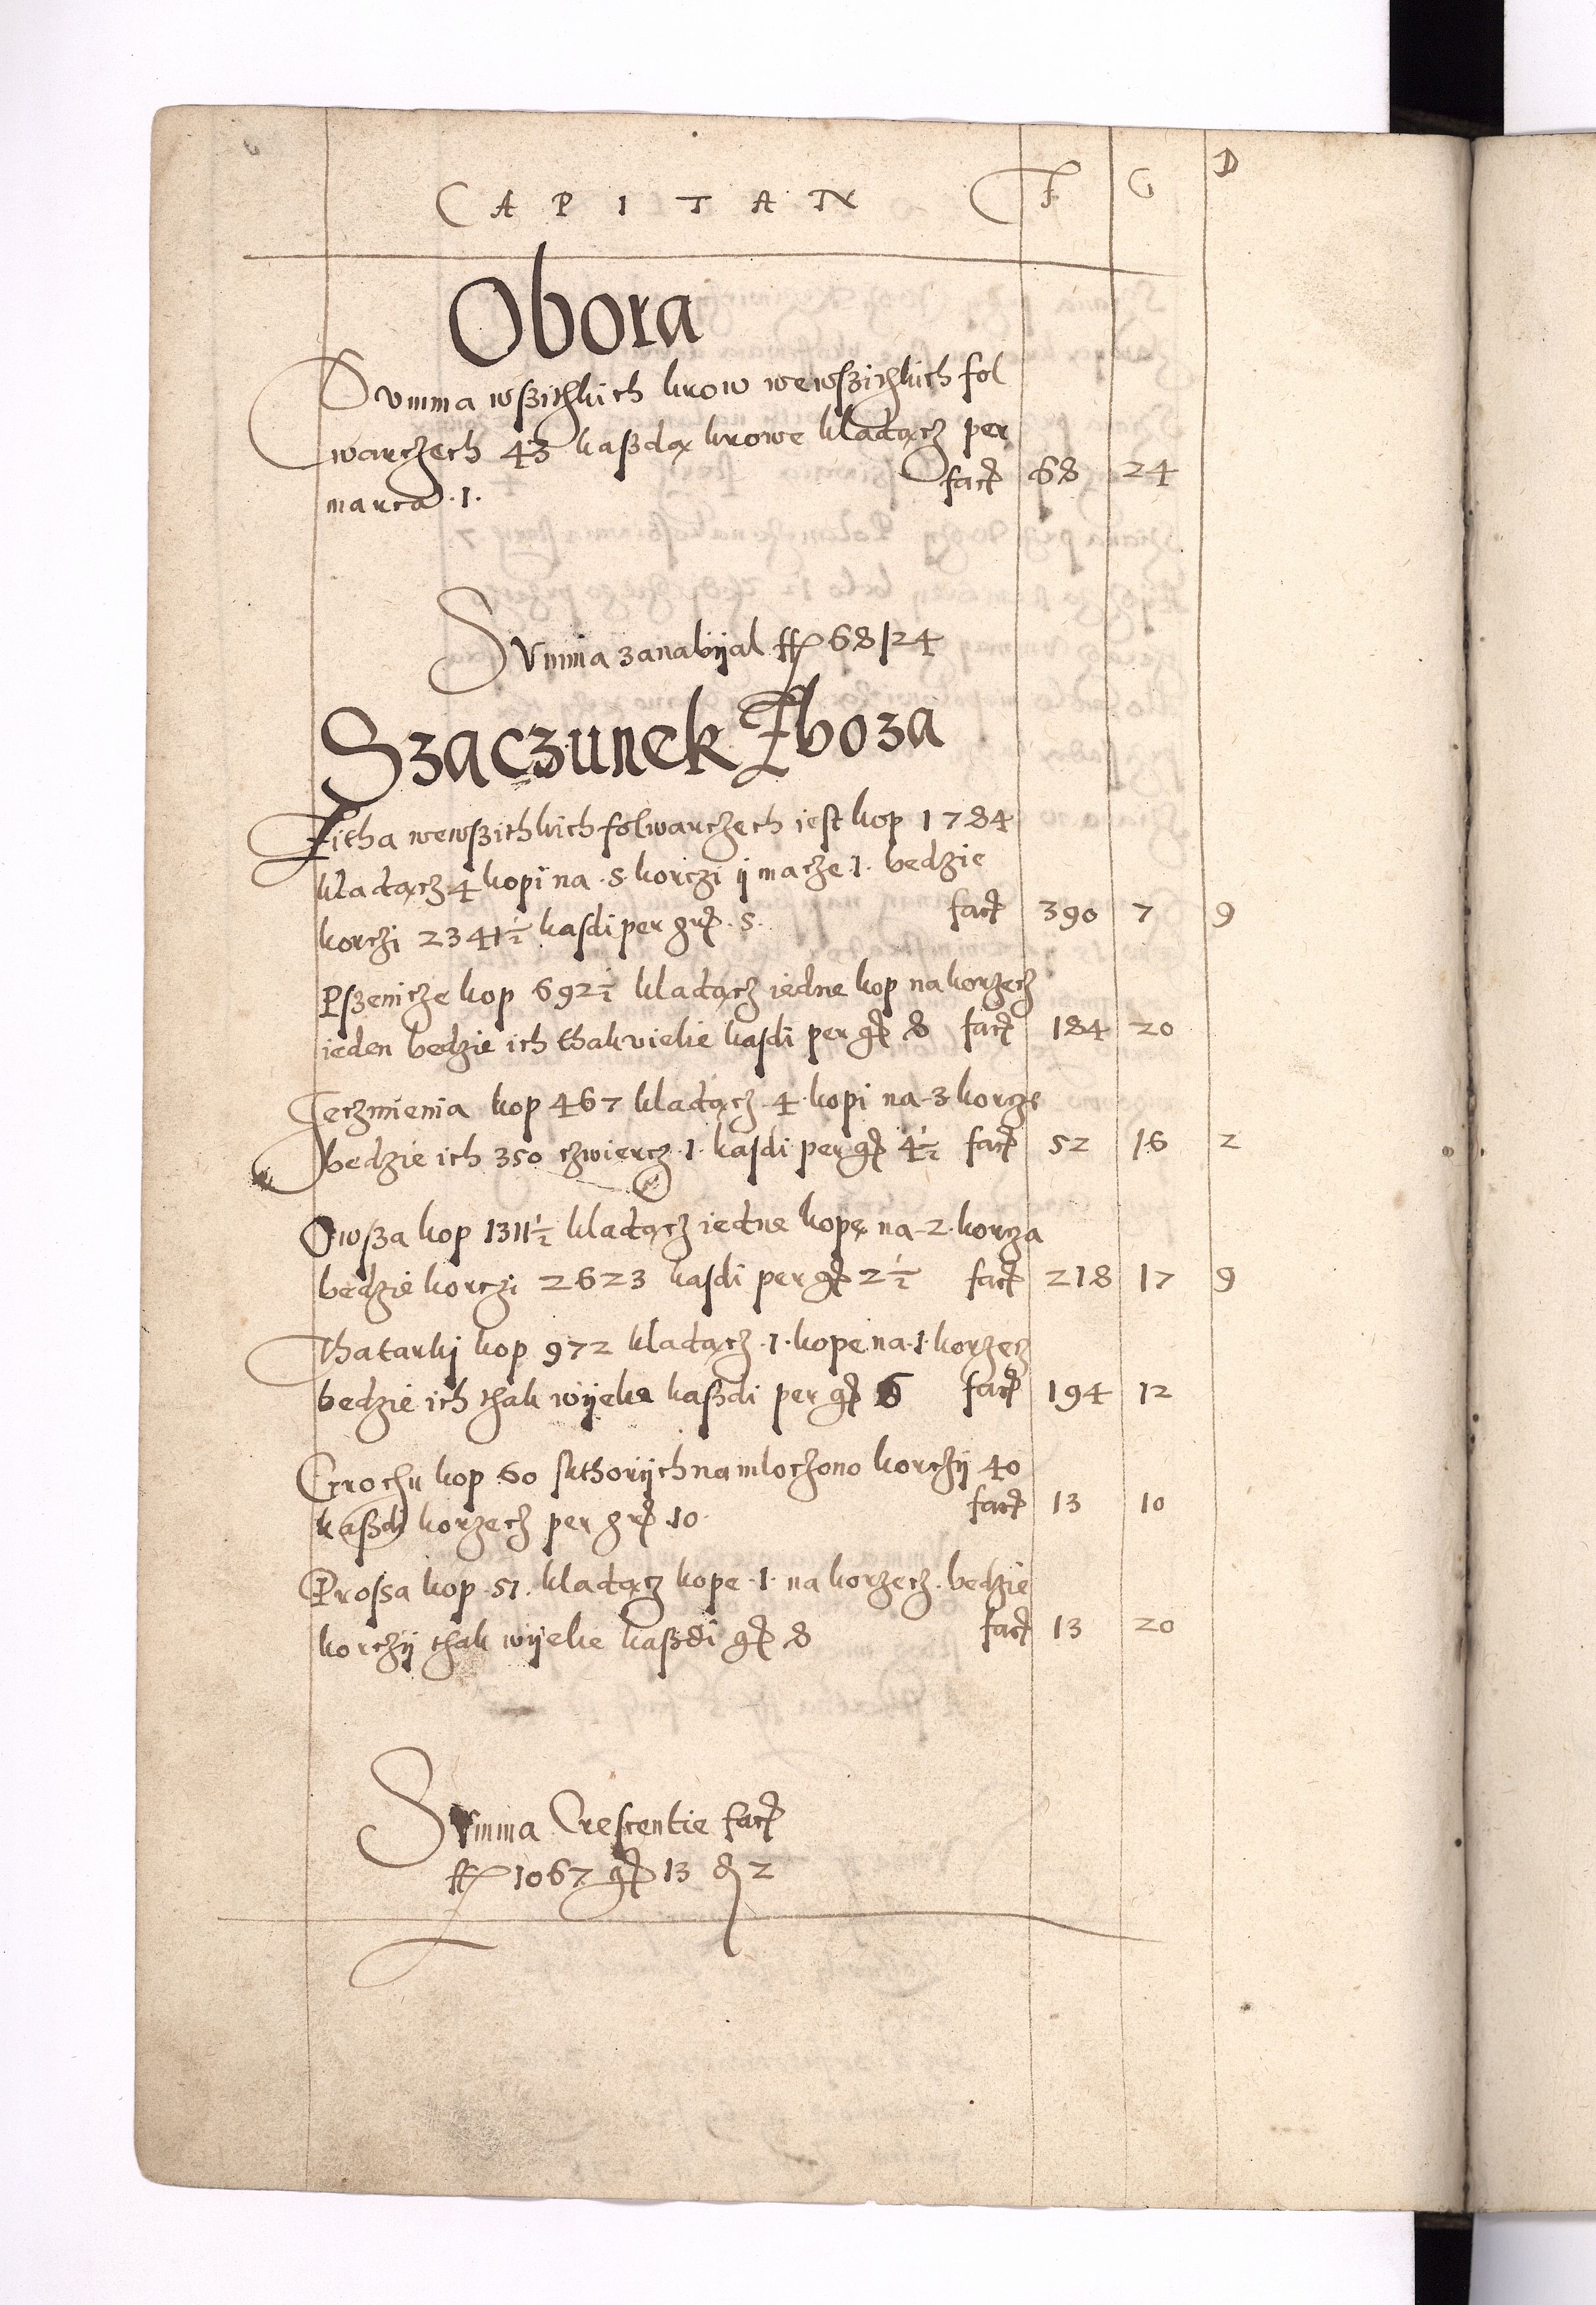 CAPITAN F G D
Obora
Summa wßithkich krow wewßithkich fol
warczech 43 kaßdą krowe kladącz per
marca .1. fact 68 24
Summa zanabyal ff 68/24
Szaczunek Zboza
Zitha wewßithkich folwarczech iest kop 1784
kladącz 4 kopi na .5. korczi ij macze .1. bedzie
korczi 2341½ kasdi per gr .5. fact 390 7 9
Pszenicze kop 692½ kladącz iedne kop na korzecz
ieden bedzie ich thakvielie kasdi per gr 8 fact 184 20
Jeczmienia kop 467 kladącz .4. kopi na .3. korcze
bedzie ich 350 czwiercz .1. kasdi per gr 4½ fact 52 16 2
Owßa kop 1311½ kladącz iedne kopę na .2. korcza
bedzie korczi 2623 kasdi per gr 2½ fact 218 17 9
Thatarkj kop 972 kladącz .1. kope na .1. korzecz
bedzie ich thak wijele kaßdi per gr 6 fact 194 12
Grochu kop 60 skthorijch namloczono korczij 40
kaßdi korzecz per gr .10. fact 13 10
Prossa kop .51. kladącz kope .1. na korzecz . bedzie
korczij thak wijelie kaßdi gr 8 fact 13 20
Summa Crescentie fact
ff 1067 gr 13 d 2